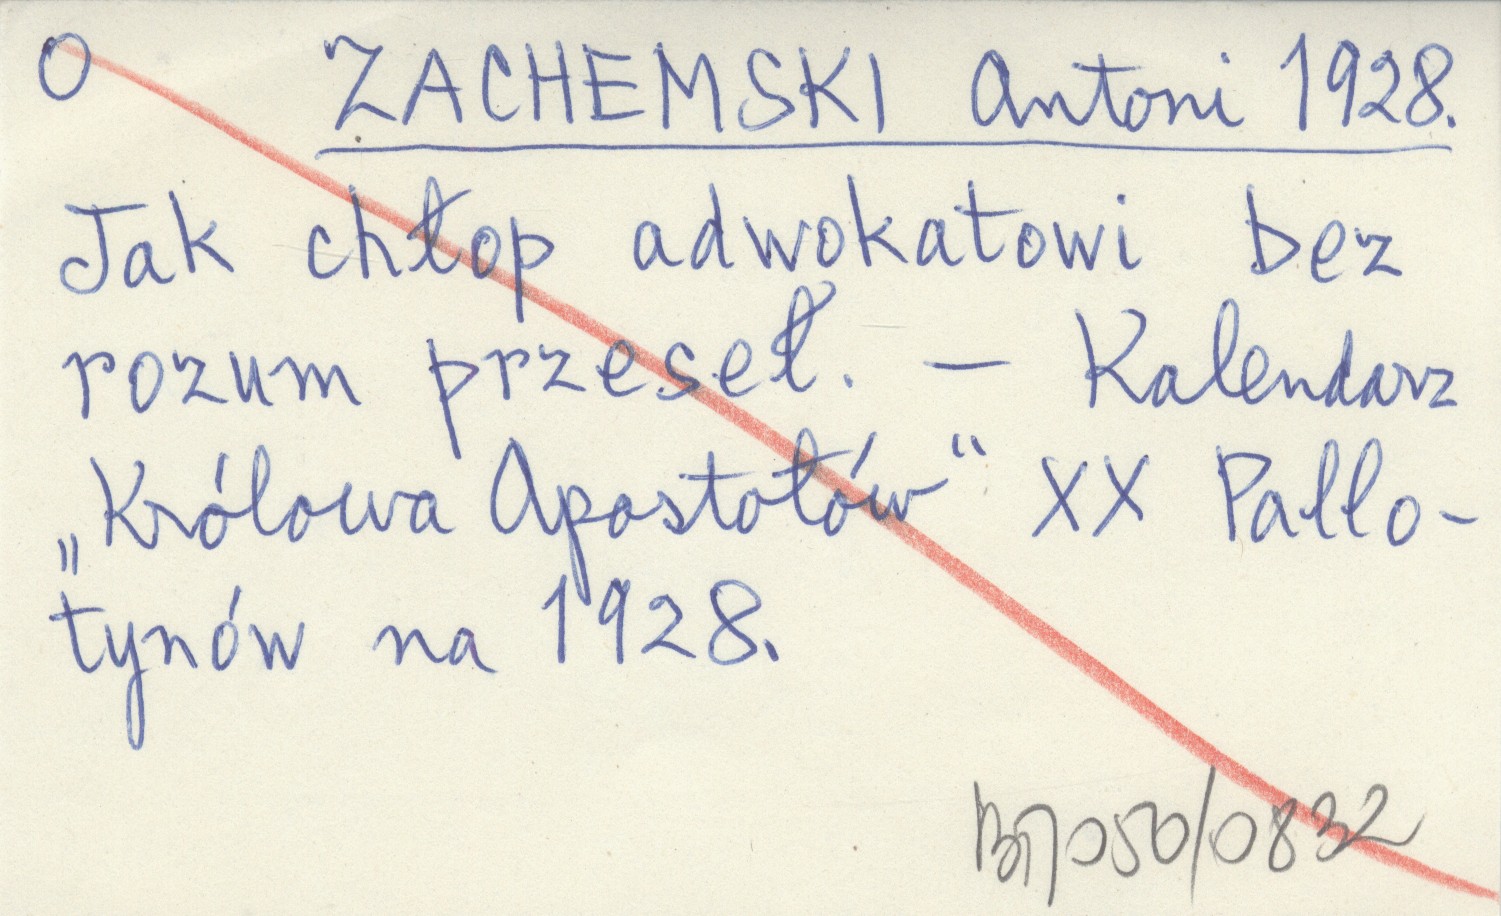 O ZACHEMSKI Antoni 1928.
Jak chłop adwokatowi bez
rozum przeseł. — Kalendarz
„Królowa Apostołów“ XX Pallo-
tynów na 1928.
050/0832